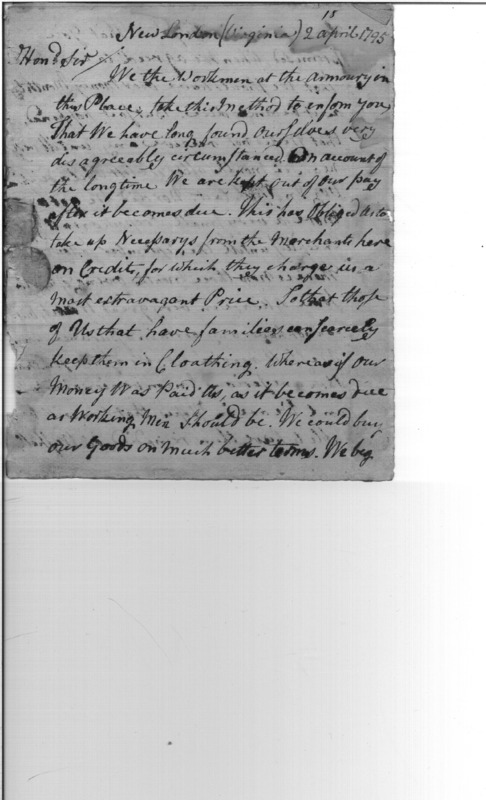 15
New London (Virginia) 2 april 1795
Hond Sir
We the Workmen at the armoury in
this Place, take this method to inform you,
That We have long found Ourselves very
disagreeably circumstanced on account of
the long time We are kept out of our pay
after it becomes due. This has Obliged us to
take up Necessarys from the Merchants here
on Credit, for which they charge us a
most extravagant Price. So that those
of Us that have families can scercely
keep them in Cloathing. Whereas if our
Money Was Paid Us, as it becomes due
as Working Men Should be. We could buy
our Goods on much better terms. We beg